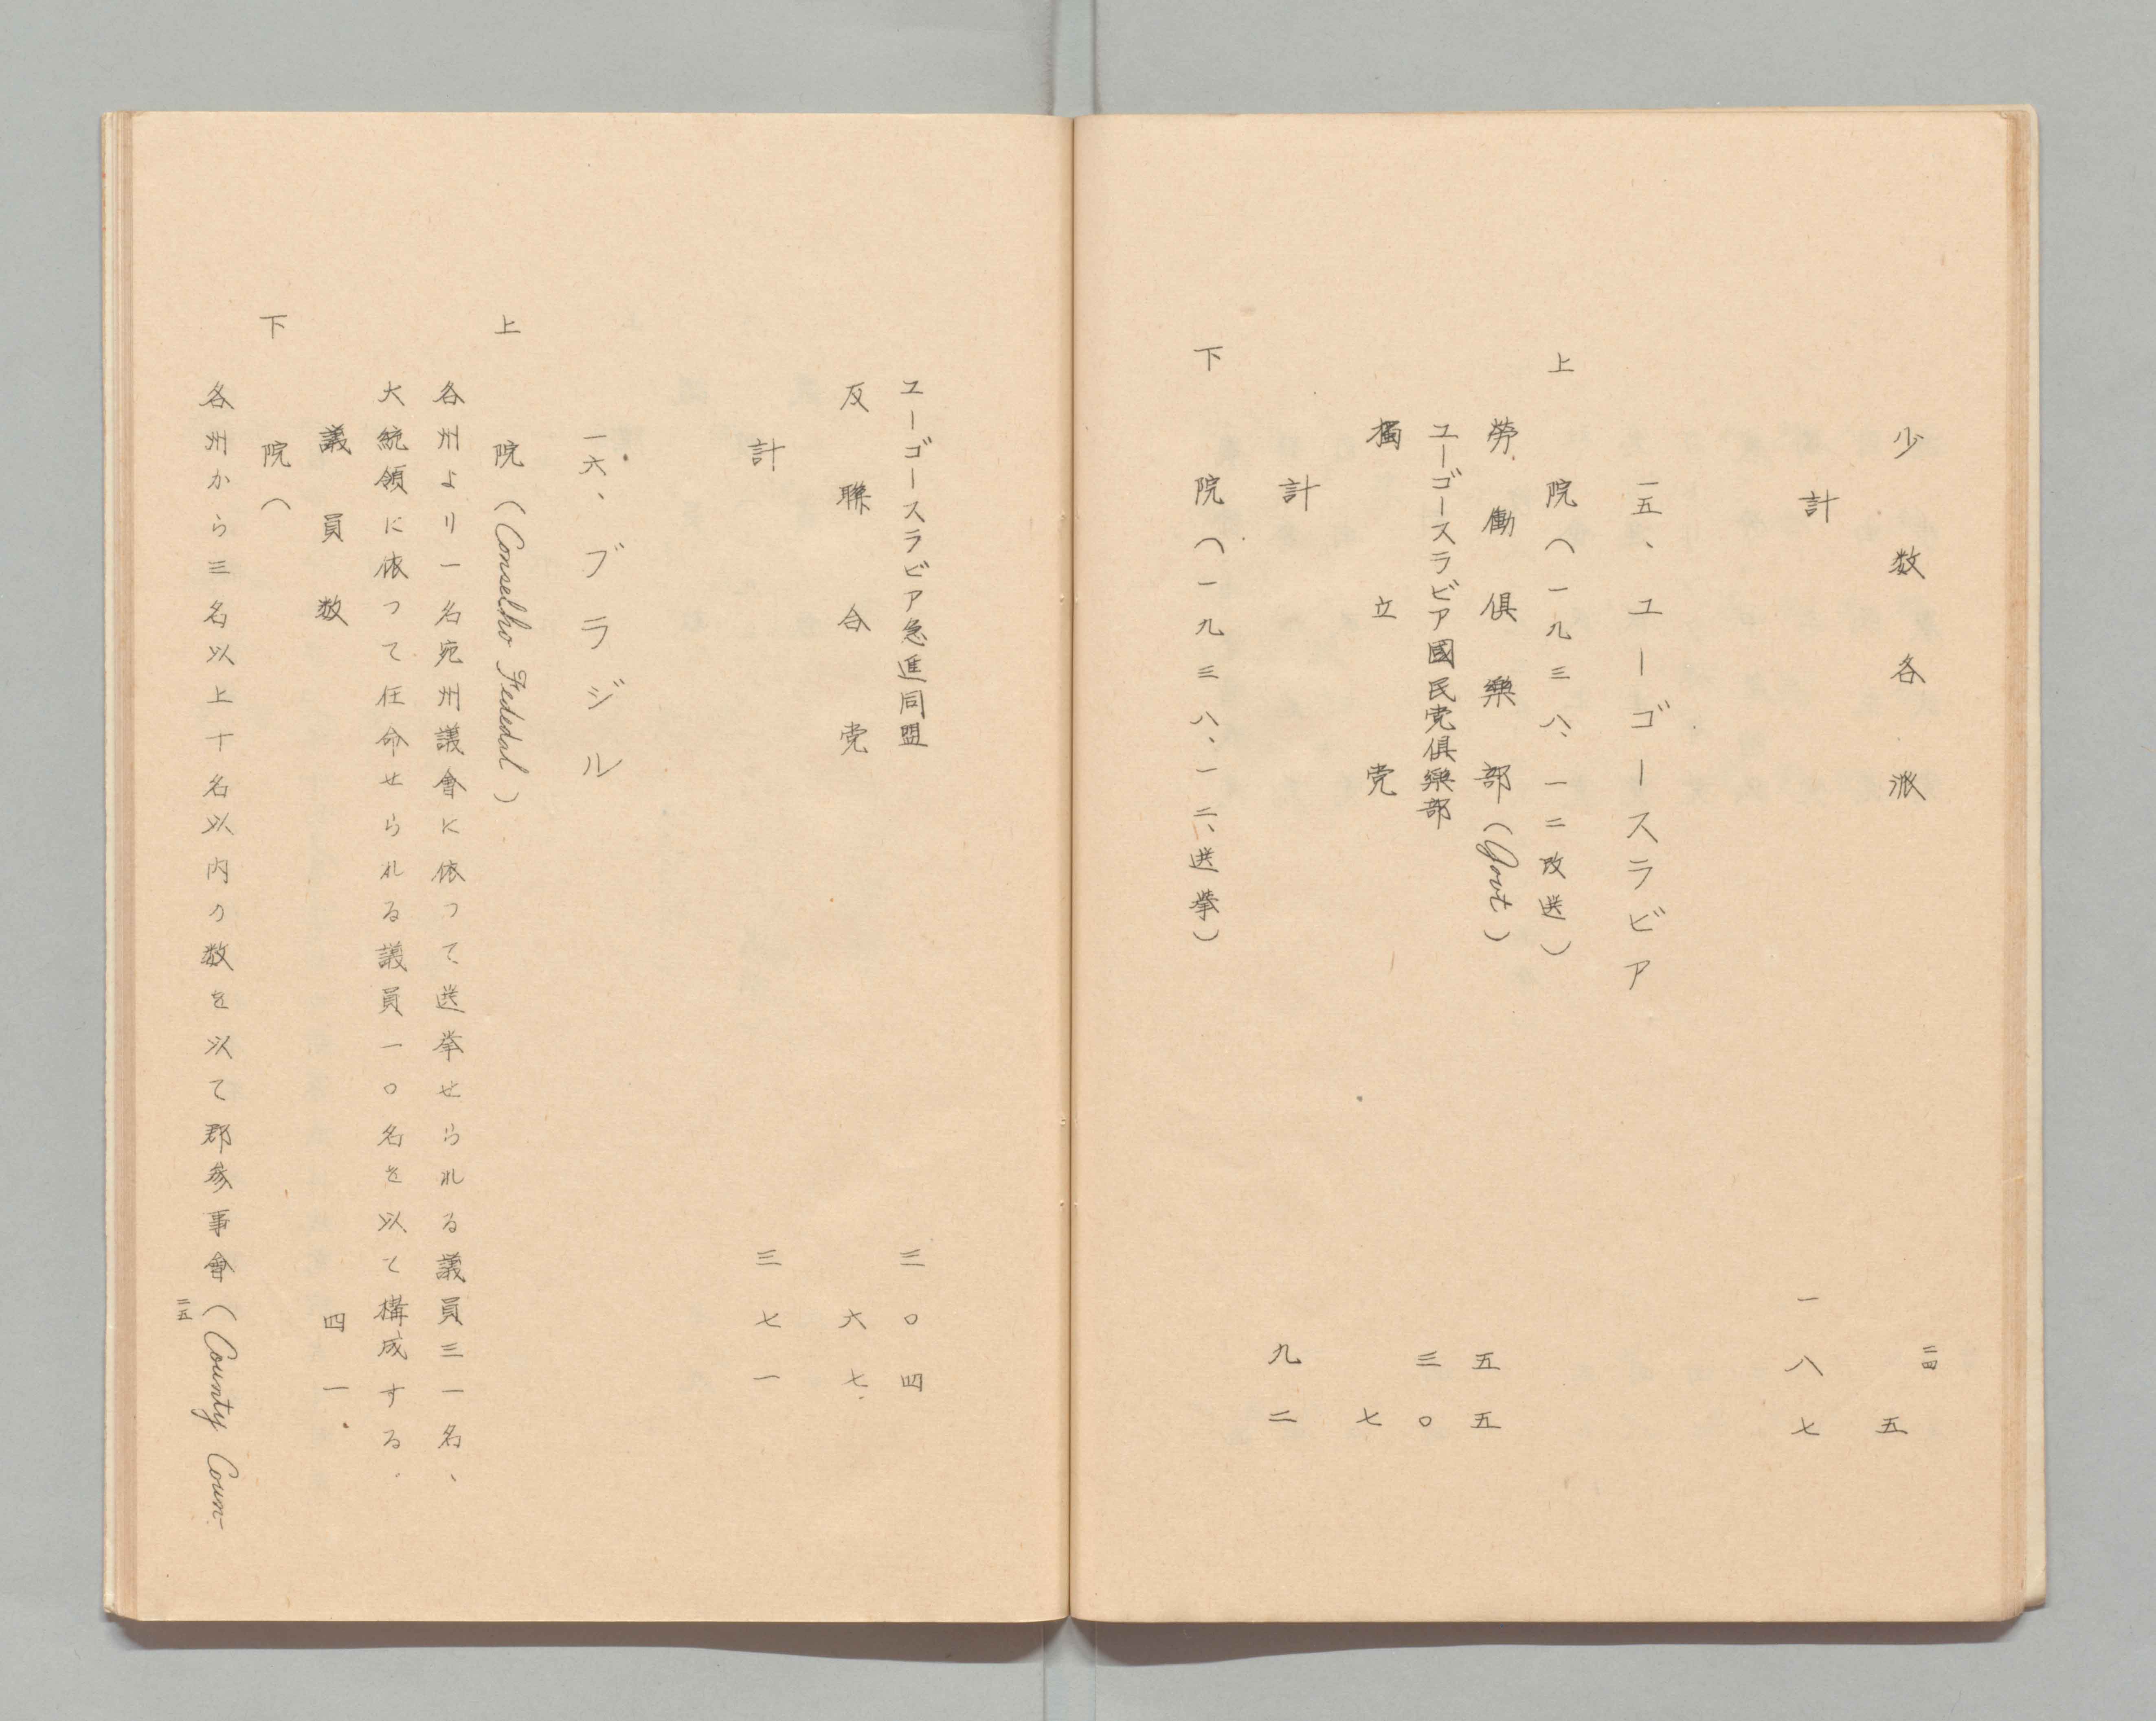 少数各派 五
計 一八七
一五、ユーゴースラビア
上院（一九三八、一二改送）
労働倶楽部（Govt） 五五
ユーゴースラビア國民党倶楽部 三〇
獨立党 七
計 九二
下院（一九三八、一二、送挙）
二四
ユーゴースラビア急進同盟 三〇四
反聯合党 六七
計 三七一
一六、ブラジル
上院（Conselho Fededal）
各州より一名宛州議會に依つて送挙せられる議員三一名、
大統領に依つて任命せられる議員一〇名を以て構成する、
議員数 四一
下院（
各州から三名以上十名以内の数を以て郡参事會（County Coun-
二五